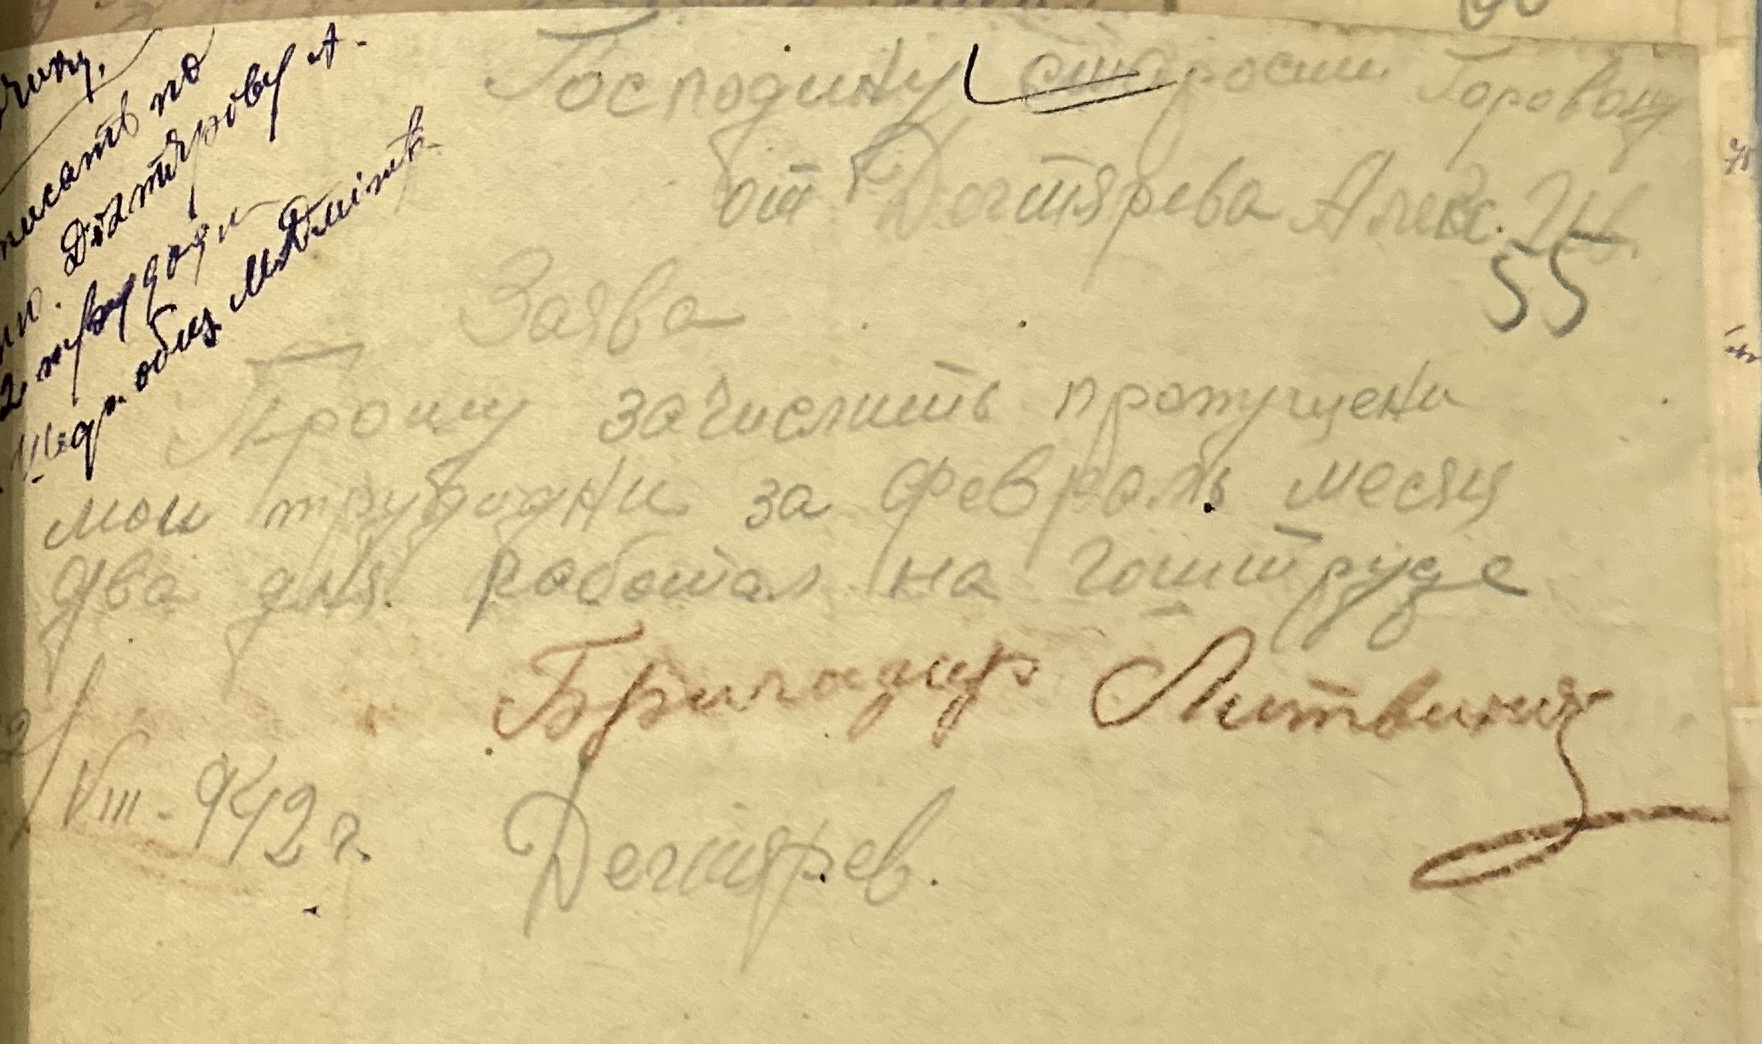 Господину старости Горовому
от Дегтярева Алекс. Ив.
55
Заява
Прошу зачислить пропущени
мои трудодни за февраль месяц
два дня работал на гоштруде
Бригадир Литвинов
VIII - 942 г.
Дегтярев.
писать по
Дегтярову А.
2 трудодни
Шедр. общ.